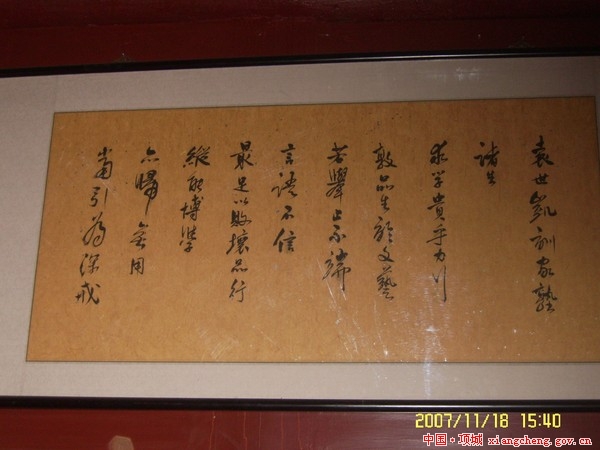 袁世凱訓家塾
諸生
求学貴乎力行
敦品生於文藝
若舉止不端
言語不信
最足以敗壞品行
縱能博學
亦歸無用
當引為深戒
2007/11/18 15:40
中国·项城 xiangcheng.gov.cn